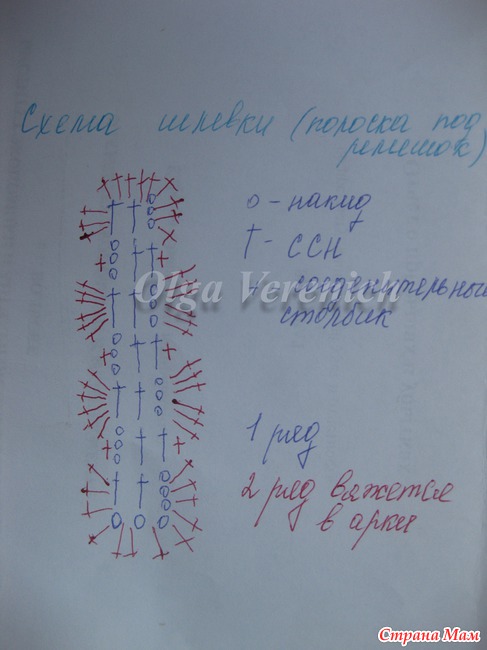 Схема шлевки (полоска под
ремешок)
о - накид
Olga Verenich
† - ССН
+ соеденительный
столбик
1 ряд
2 ряд вяжется
в арки
Страна Мам